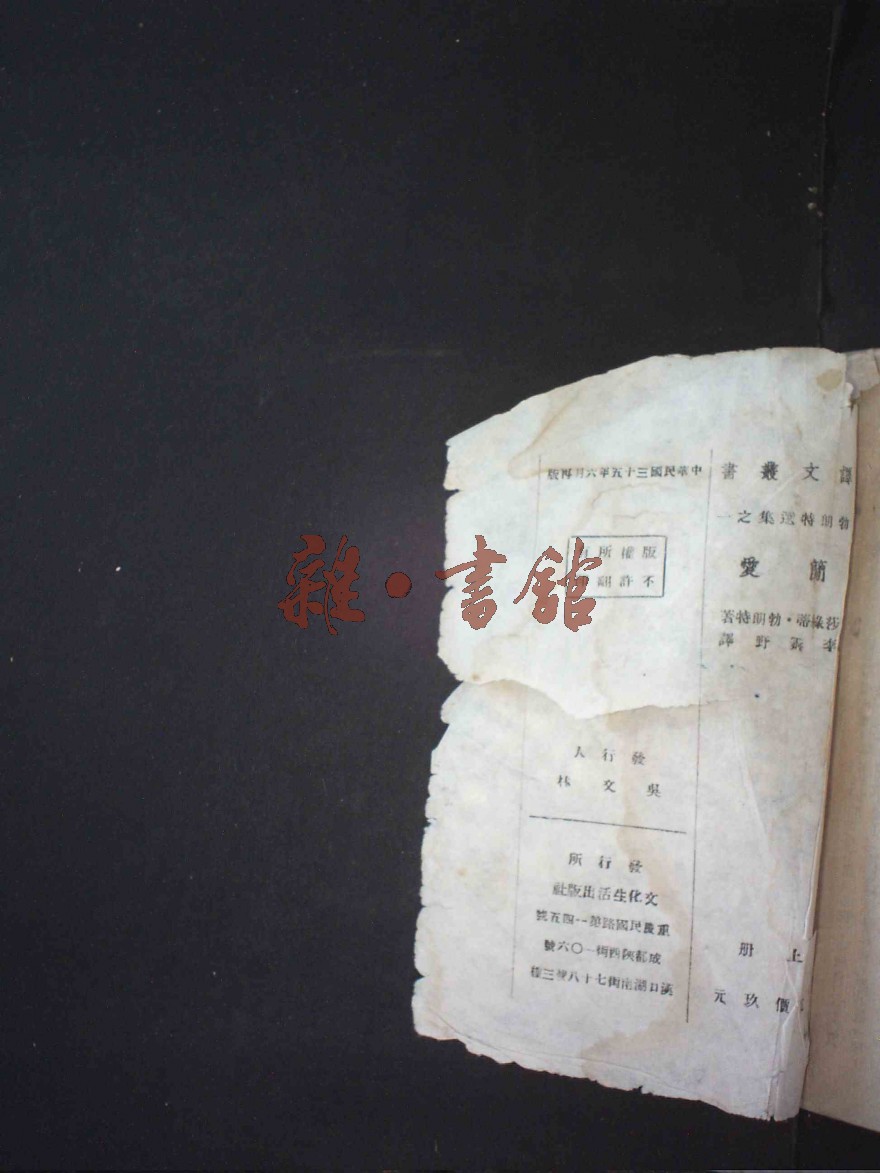 譯文叢書
勃朗特選集之一
簡愛
莎綠蒂·勃朗特著
李霽野譯
上册
價玖元
中華民國三十五年六月再版
版權所有
不許翻印
發行人
吳文林
發行所
文化生活出版社
重慶民國路第一四五號
成都陝西街一〇六號
漢口湖南街七十八號三樓
雜·書館